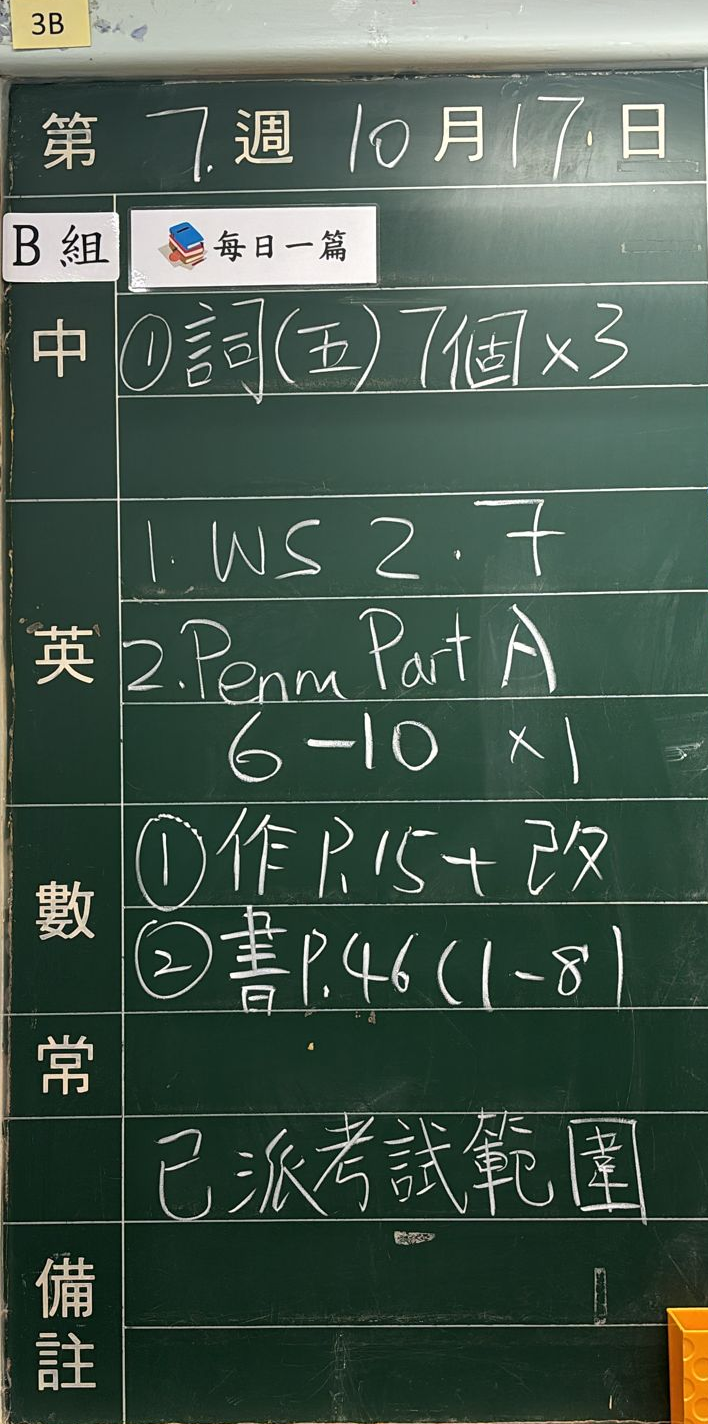 3B
第 7. 週 10 月 17 日
B 組 每日一篇
中 ①詞(五)7個×3
英 1. WS 2.7
2. Penm Part A
6-10 ×1
數 ①作P.15+改
②書P.46(1-8)
常
已派考試範圍
備註